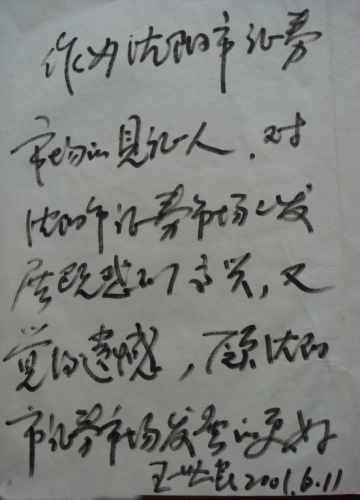 作为沈阳市证券
市场的见证人，对
沈阳市证券市场之发
展既感到了高兴，又
觉得遗憾，愿沈阳
市证券市场发展的更好
王 2001.6.11